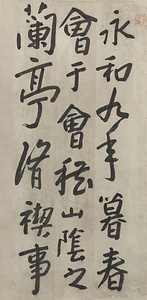 永和九年暮春
會于會稽山陰之
蘭亭脩禊事